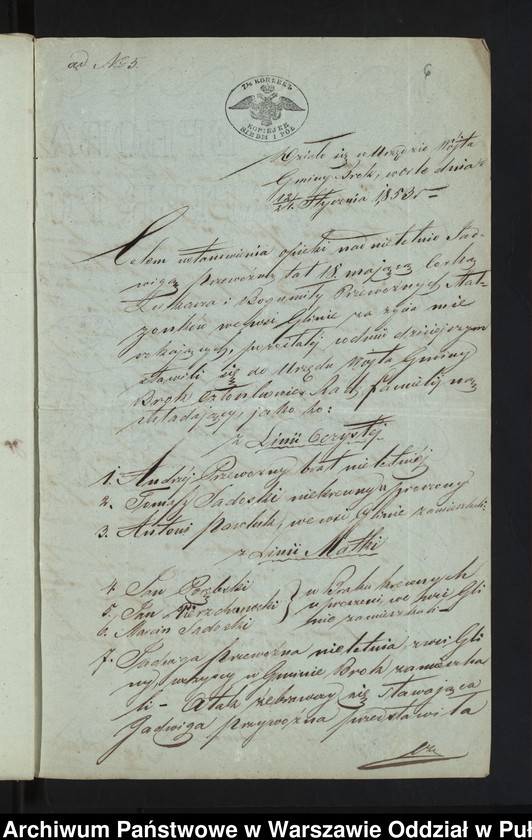 ad No 5.
6
7½ КОПѢЕКЪ
KOPIEJEK
SIEDM I PÓŁ
Działo się w Urzędzie Wójta
Gminy Brok, w dnia
Stycznia 1853 r
Celem ustanowienia opieki nad nieletnią Jad-
wigą Przewozną lat 18 mającą Córką
Łukasza i Bogumiły Przewoznych Mał-
żonków we wsi Glinie za życia mie
szkających, pozostałej w dniu dzisiejszym
stawili się do Urzędu Wójta Gminy
Brok Członkowie Rady familijnej
składający, jako to:
z Linii Oczystej
1. Andrzej Przewozny brat nieletniej
2. Tomasz Sadoski niekrewny uproszony
3. Antoni Pawluk, we wsi Glinie zamieszkali
z Linii Matki
4. Jan
5. Jan
6. Marcin Sadoski
w braku krewnych
uproszeni we wsi Gli
nie zamieszkali
7. Jadwiga Przewozna nieletnia z wsi Gli
ny wszyscy w Gminie Brok zamieszka
li – A tak zebrawszy się stawająca
Jadwiga Przywózna przedstawiła
Archiwum Państwowe w Warszawie Oddział w Puł